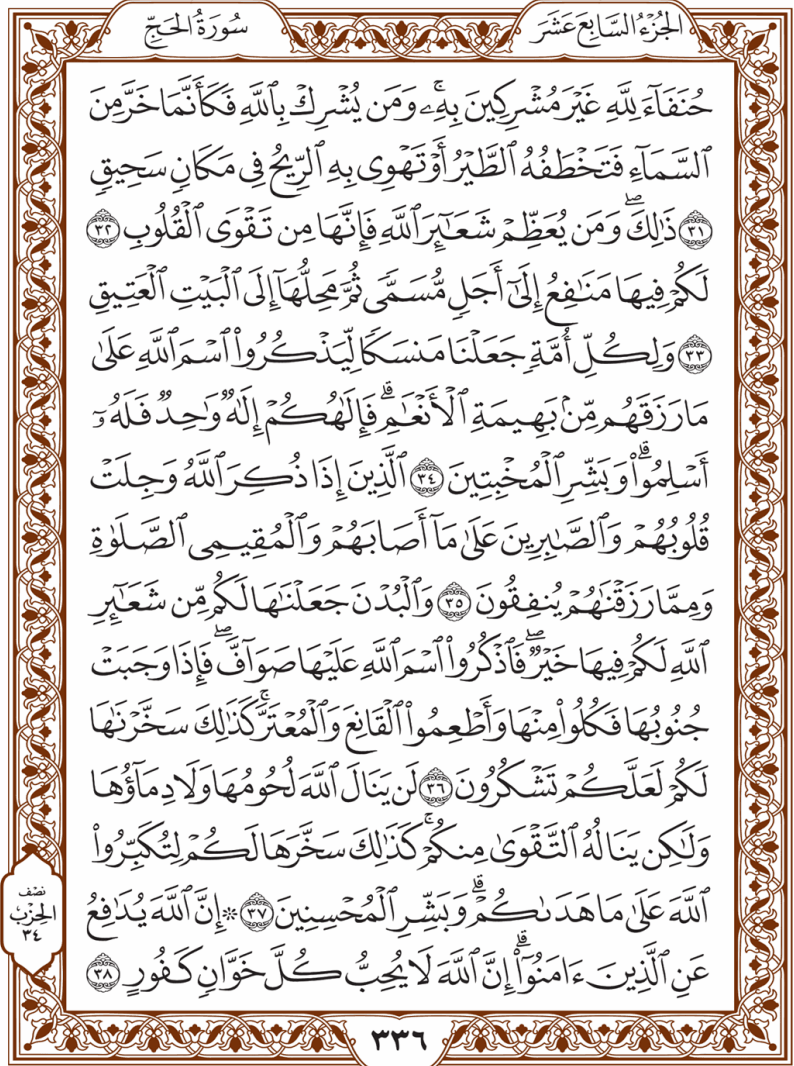 الجُزْءُ السَّابِعَ عَشَرَ
سُورَةُ الحَجِّ
حُنَفَآءَ لِلَّهِ غَيْرَ مُشْرِكِينَ بِهِۦۚ وَمَن يُشْرِكْ بِٱللَّهِ فَكَأَنَّمَا خَرَّ مِنَ
ٱلسَّمَآءِ فَتَخْطَفُهُ ٱلطَّيْرُ أَوْ تَهْوِى بِهِ ٱلرِّيحُ فِى مَكَانٍ سَحِيقٍ
٣١ ذَٰلِكَۖ وَمَن يُعَظِّمْ شَعَـٰٓئِرَ ٱللَّهِ فَإِنَّهَا مِن تَقْوَى ٱلْقُلُوبِ ٣٢
لَكُمْ فِيهَا مَنَـٰفِعُ إِلَىٰٓ أَجَلٍ مُّسَمًّى ثُمَّ مَحِلُّهَآ إِلَى ٱلْبَيْتِ ٱلْعَتِيقِ
٣٣ وَلِكُلِّ أُمَّةٍ جَعَلْنَا مَنسَكًا لِّيَذْكُرُوا۟ ٱسْمَ ٱللَّهِ عَلَىٰ
مَا رَزَقَهُم مِّنۢ بَهِيمَةِ ٱلْأَنْعَـٰمِۗ فَإِلَـٰهُكُمْ إِلَـٰهٌ وَٰحِدٌ فَلَهُۥٓ
أَسْلِمُوا۟ۗ وَبَشِّرِ ٱلْمُخْبِتِينَ ٣٤ ٱلَّذِينَ إِذَا ذُكِرَ ٱللَّهُ وَجِلَتْ
قُلُوبُهُمْ وَٱلصَّـٰبِرِينَ عَلَىٰ مَآ أَصَابَهُمْ وَٱلْمُقِيمِى ٱلصَّلَوٰةِ
وَمِمَّا رَزَقْنَـٰهُمْ يُنفِقُونَ ٣٥ وَٱلْبُدْنَ جَعَلْنَـٰهَا لَكُم مِّن شَعَـٰٓئِرِ
ٱللَّهِ لَكُمْ فِيهَا خَيْرٌۖ فَٱذْكُرُوا۟ ٱسْمَ ٱللَّهِ عَلَيْهَا صَوَآفَّۖ فَإِذَا وَجَبَتْ
جُنُوبُهَا فَكُلُوا۟ مِنْهَا وَأَطْعِمُوا۟ ٱلْقَانِعَ وَٱلْمُعْتَرَّۚ كَذَٰلِكَ سَخَّرْنَـٰهَا
لَكُمْ لَعَلَّكُمْ تَشْكُرُونَ ٣٦ لَن يَنَالَ ٱللَّهَ لُحُومُهَا وَلَا دِمَآؤُهَا
وَلَـٰكِن يَنَالُهُ ٱلتَّقْوَىٰ مِنكُمْۚ كَذَٰلِكَ سَخَّرَهَا لَكُمْ لِتُكَبِّرُوا۟
ٱللَّهَ عَلَىٰ مَا هَدَىٰكُمْۗ وَبَشِّرِ ٱلْمُحْسِنِينَ ٣٧ ۞ إِنَّ ٱللَّهَ يُدَٰفِعُ
عَنِ ٱلَّذِينَ ءَامَنُوٓا۟ۗ إِنَّ ٱللَّهَ لَا يُحِبُّ كُلَّ خَوَّانٍ كَفُورٍ ٣٨
نِصْف
الحِزْبِ
٣٤
٣٣٦